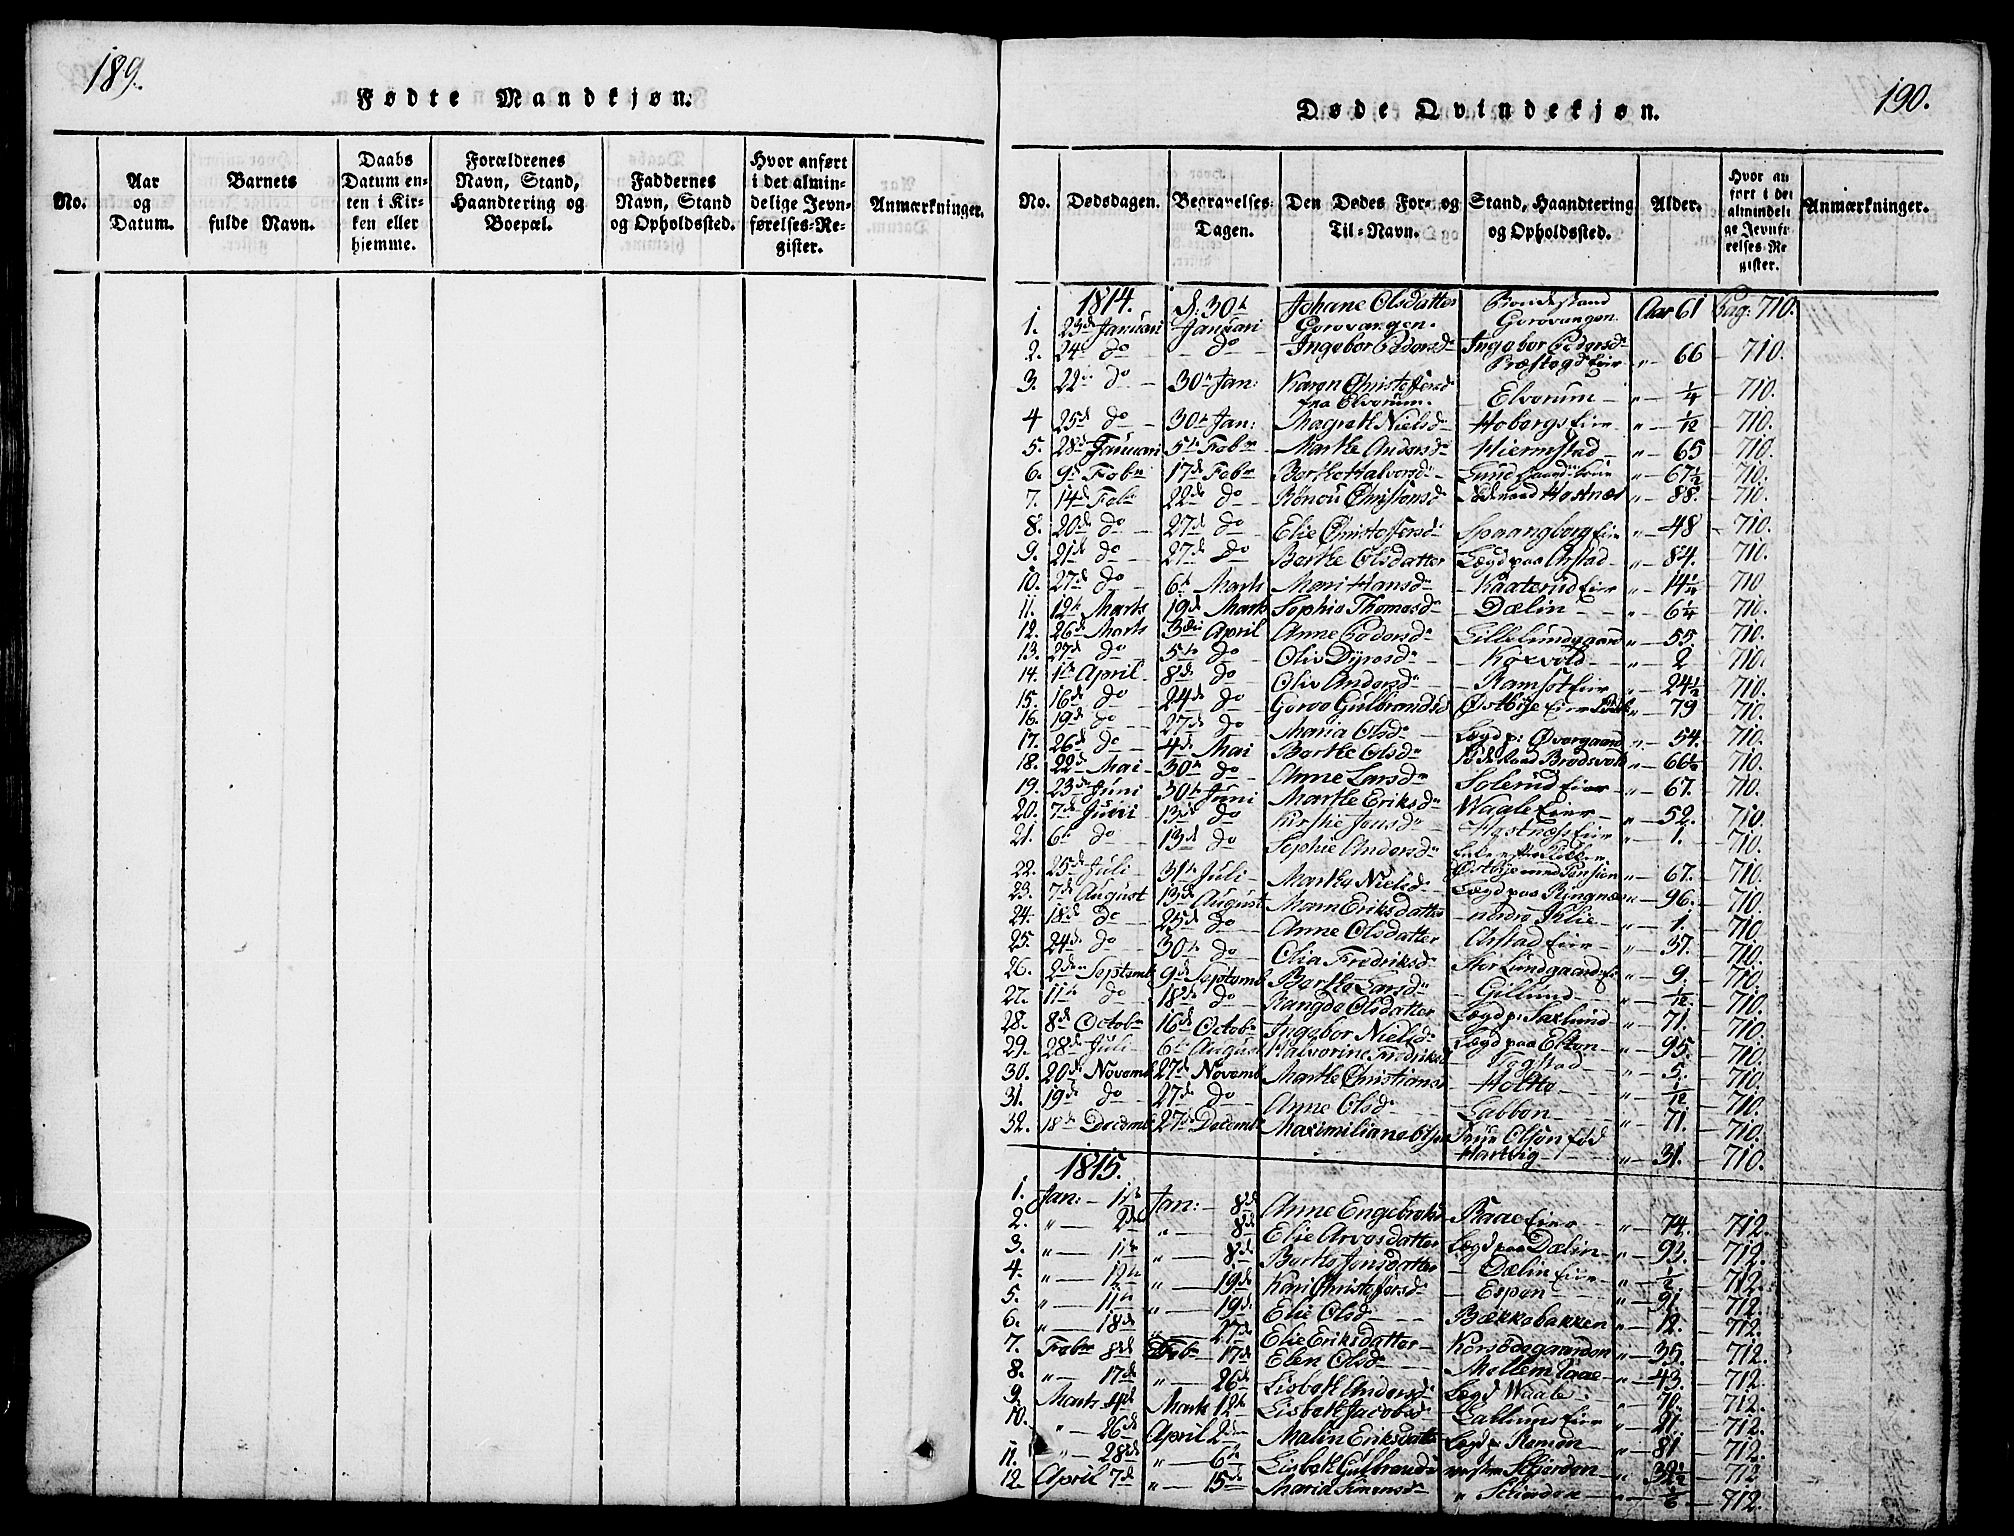 189.
Fødte Mandkjøn.
No.
Aar og Datum.
Barnets fulde Navn.
Daabs Datum enten i Kirken eller hjemme.
Forældrenes Navn, Stand, Haandtering og Boepæl.
Faddernes Navn, Stand og Opholdssted.
Hvor anført i det almindelige Jevnførelses-Register.
Anmærkninger.
190.
Døde Qvindekjøn.
No.
Dødsdagen.
Begravelses-Dagen.
Den Dødes For- og Til-Navn.
Stand, Haandtering og Opholdssted.
Alder.
Hvor anført i det almindelige Jevnførelses-Register.
Anmærkninger.
1814.
1. 23d Januari d: 30te Januari Johane Olsdatter Gorovangen. Bondestand Gorovangen Aar 61 Pag: 710.
2. 24 do do Ingebor Pedersd Ingebor Pedersd Præstegds Eier " 66 710.
3. 22 do 30te Jan: Karen Christoffersd fra Elverum. Elverum " 1/4 710.
4 25d do 30te Jan: Magreth Nielsd Hobergs Eier " 1/12 710.
5. 28d Januari 5te Febr Marthe Andersd Hiermstad " 65 710.
6. 9d Febr 17d Febr Berthe Halvorsd " 67 1/2 710.
7. 14d Febr 22d do Christensd Hostnæs " 88. 710.
8. 20d do 27d do Elie Christoffersd Spaangberg Eier " 48 710.
9. 21d do 27d do Berthe Olsdatter Lægd paa Arstad " 84. 710.
10. 27d do 6te Marts Mari Hansd Kaaterud Eier " 14 1/4 710.
11. 12te Marts 19d Marts Sophie Thomasd Dælin " 6 1/4 710.
12. 26d Marts 3die April Anne Pedersd Lille Lundgaard " 55. 710.
13. 27d do 5te do Oliv Dyresd Koxvold " 2 710.
14. 1te April 8d do Oliv Andersd Ramset Eier " 24 1/2 710.
15. 16d do 24d do Goroo Gulbrandsd Østbye Eier " 79 710.
16. 19d do 27d do Maria Olsd Lægd p: Øvergaard " 54. 710.
17. 26d do 4d Mai Berthe Olsd Brodsvold " 66 1/2 710.
18. 22d Mai 30te do Anne Larsd Solerud Eier " 67. 710.
19. 23d Juni 30te Juni Marthe Eriksd Waale Eier " 52. 710.
20. 7d Juni 13d do Kirstie Jensd Hostnæs Eier " 1. 710.
21. 6te do 13d do Sophie Andersd
22. 25d Juli 31te Juli Marthe Nielsd Østbye med Pension " 67. 710.
23. 7d August 13d August Maren Eriksdatter Lægd paa Ringnæs " 96. 710.
24. 18d do 25d do Anne Olsdatter nedre Jklie " 1. 710.
25. 24d do 30te do Elia Fredriksd Arstad Eier " 37. 710.
26. 2den Septemb 9d Septemb Berthe Larsd Stor Lundgaards Ei " 9. 710.
27. 11te do 18d do Rangde Olsdatter Gillund " 1/12 710.
28. 8d Octobr 16d Octobr Ingebor Nielsd Lægd p: Saxlund " 71. 710.
29. 28d Juli 6te August Halvorine Fredriksd Lægd paa Eften " 95. 710.
30. 20d Novemb 27d Novemb Marthe Christiansd Fogstad " 5. 710.
31. 19d do 27d do Anne Olsd Holtte " 1/12 710.
32. 18d Decemb 27d Decemb Maximiliane Olsen Labben " 71. 710.
Frue Olsen fød Hartvig " 31. 710.
1815.
1. Jan: 1ste Jan: 8d Anne Engebretsd Raae Eier " 74. 712.
2. " 2d " 8d Elie Arvesdatter Lægd paa Dælin " 93. 712.
3. " 1ste " 8d Berthe Jonsdatter Dælin Eier " 1/2 712.
4. " 12te " 19d Kari Christoffersd Espen " 91 712.
5. " 11te " 19d. Elie Olsd Bækkebakken " 12. 712.
6. " 18d " 27d Elie Eriksdatter Korsbdegaarden " 35. 712.
7. Febr 8d Febr 17d Elen Olsd Mellem Raae " 43. 712.
8. " 17d " 26d Lisbeth Andersd Lægd Waale " 70. 712.
9. Marts 4d Marts 12te Lisbeth Jacobsd Eier " 21. 712.
10. " 26d April 2den Malin Eriksdatt Lægd p: Remen " 81 712.
11. " 28d " 6te Lisbeth Gulbrandsd vestre Skierden " 32 1/2 712
12. April 7d " 15d Maria Simensd " Skierden " 1/6 712.